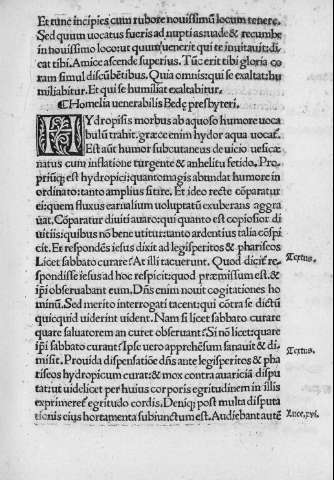 Et tunc incipies cum rubore nouissimū locum tenere.
Sed quum uocatus fueris ad nuptias:uade & recumbe
in nouissimo loco:ut quum uenerit qui te inuitauit:di
cat tibi. Amice ascende superius. Tūc erit tibi gloria co
ram simul discūbētibus. Quia omnis:qui se exaltat:hu
miliabitur. Et qui se humiliat exaltabitur.
¶ Homelia uenerabilis Bedę presbyteri.
HYdropisis morbus ab aquoso humore uoca
bulū trahit. græce enim hydor aqua uocaƭ.
Est aūt humor subcutaneus de uicio uesicæ
natus cum inflatione turgente & anhelitu fetido. Pro
priūq; est hydropici:quantomagis abundat humore in
ordinato:tanto amplius sitire. Et ideo recte cōparatur
ei:quem fluxus carnalium uoluptatū exuberans aggra
uat. Cōparatur diuiti auaro:qui quanto est copiosior di
uitiis:quibus nō bene utitur:tanto ardentius talia cōcupi
cit. Et respondēs iesus dixit ad legisperitos & phariseos
Licet sabbato curare? At illi tacuerunt. Quod diciƭ re-
spondisse iesus ad hoc respicit:quod præmissum est.&
ipi obseruabant eum. Dn̄s enim nouit cogitationes ho
minū. Sed merito interrogati tacent:qui cōtra se dictū
quicquid uiderint uident. Nam si licet sabbato curare
quare saluatorem an curet obseruant? Si nō licet:quare
ipi sabbato curant? Ipse uero apprehēsum sanauit & di-
misit. Prouida dispensatiōe dn̄s ante legisperitos & pha
riseos hydropicum curat:& mox contra auariciā dispu
tat:ut uidelicet per huius corporis egritudinem in illis
exprimereƭ egritudo cordis. Deniq; post multa disputa
tionis eius hortamenta subiunctum est. Audiebant autē
Textus.
Textus.
Luce.xvi.